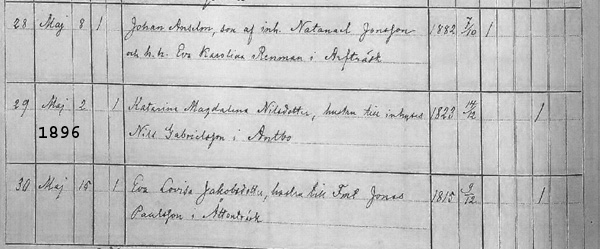 28 Maj 8 1 Johan Anselm, son af inh. Natanael Jonsson 1882 7/10 1
och h. h. Eva Karolina Renman i Arfträsk
29 Maj 2 1 Katarina Magdalena Nilsdotter, hustru till inhyses 1823 14/12 1
1896 Nils Gabrielsson i Antbo
30 Maj 15 1 Eva Lovisa Jakobsdotter, hustru till Jonas 1815 9/12 1
Paulsson i Åttonträsk